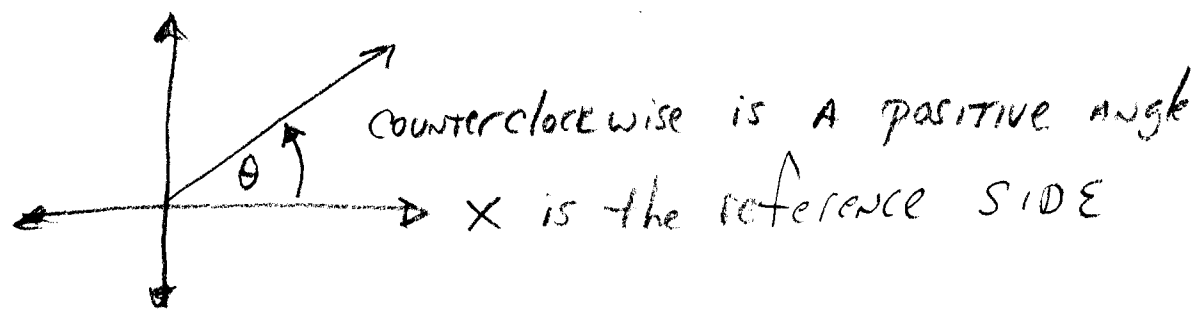 θ
counterclockwise is A positive Angle
X is the reference SIDE